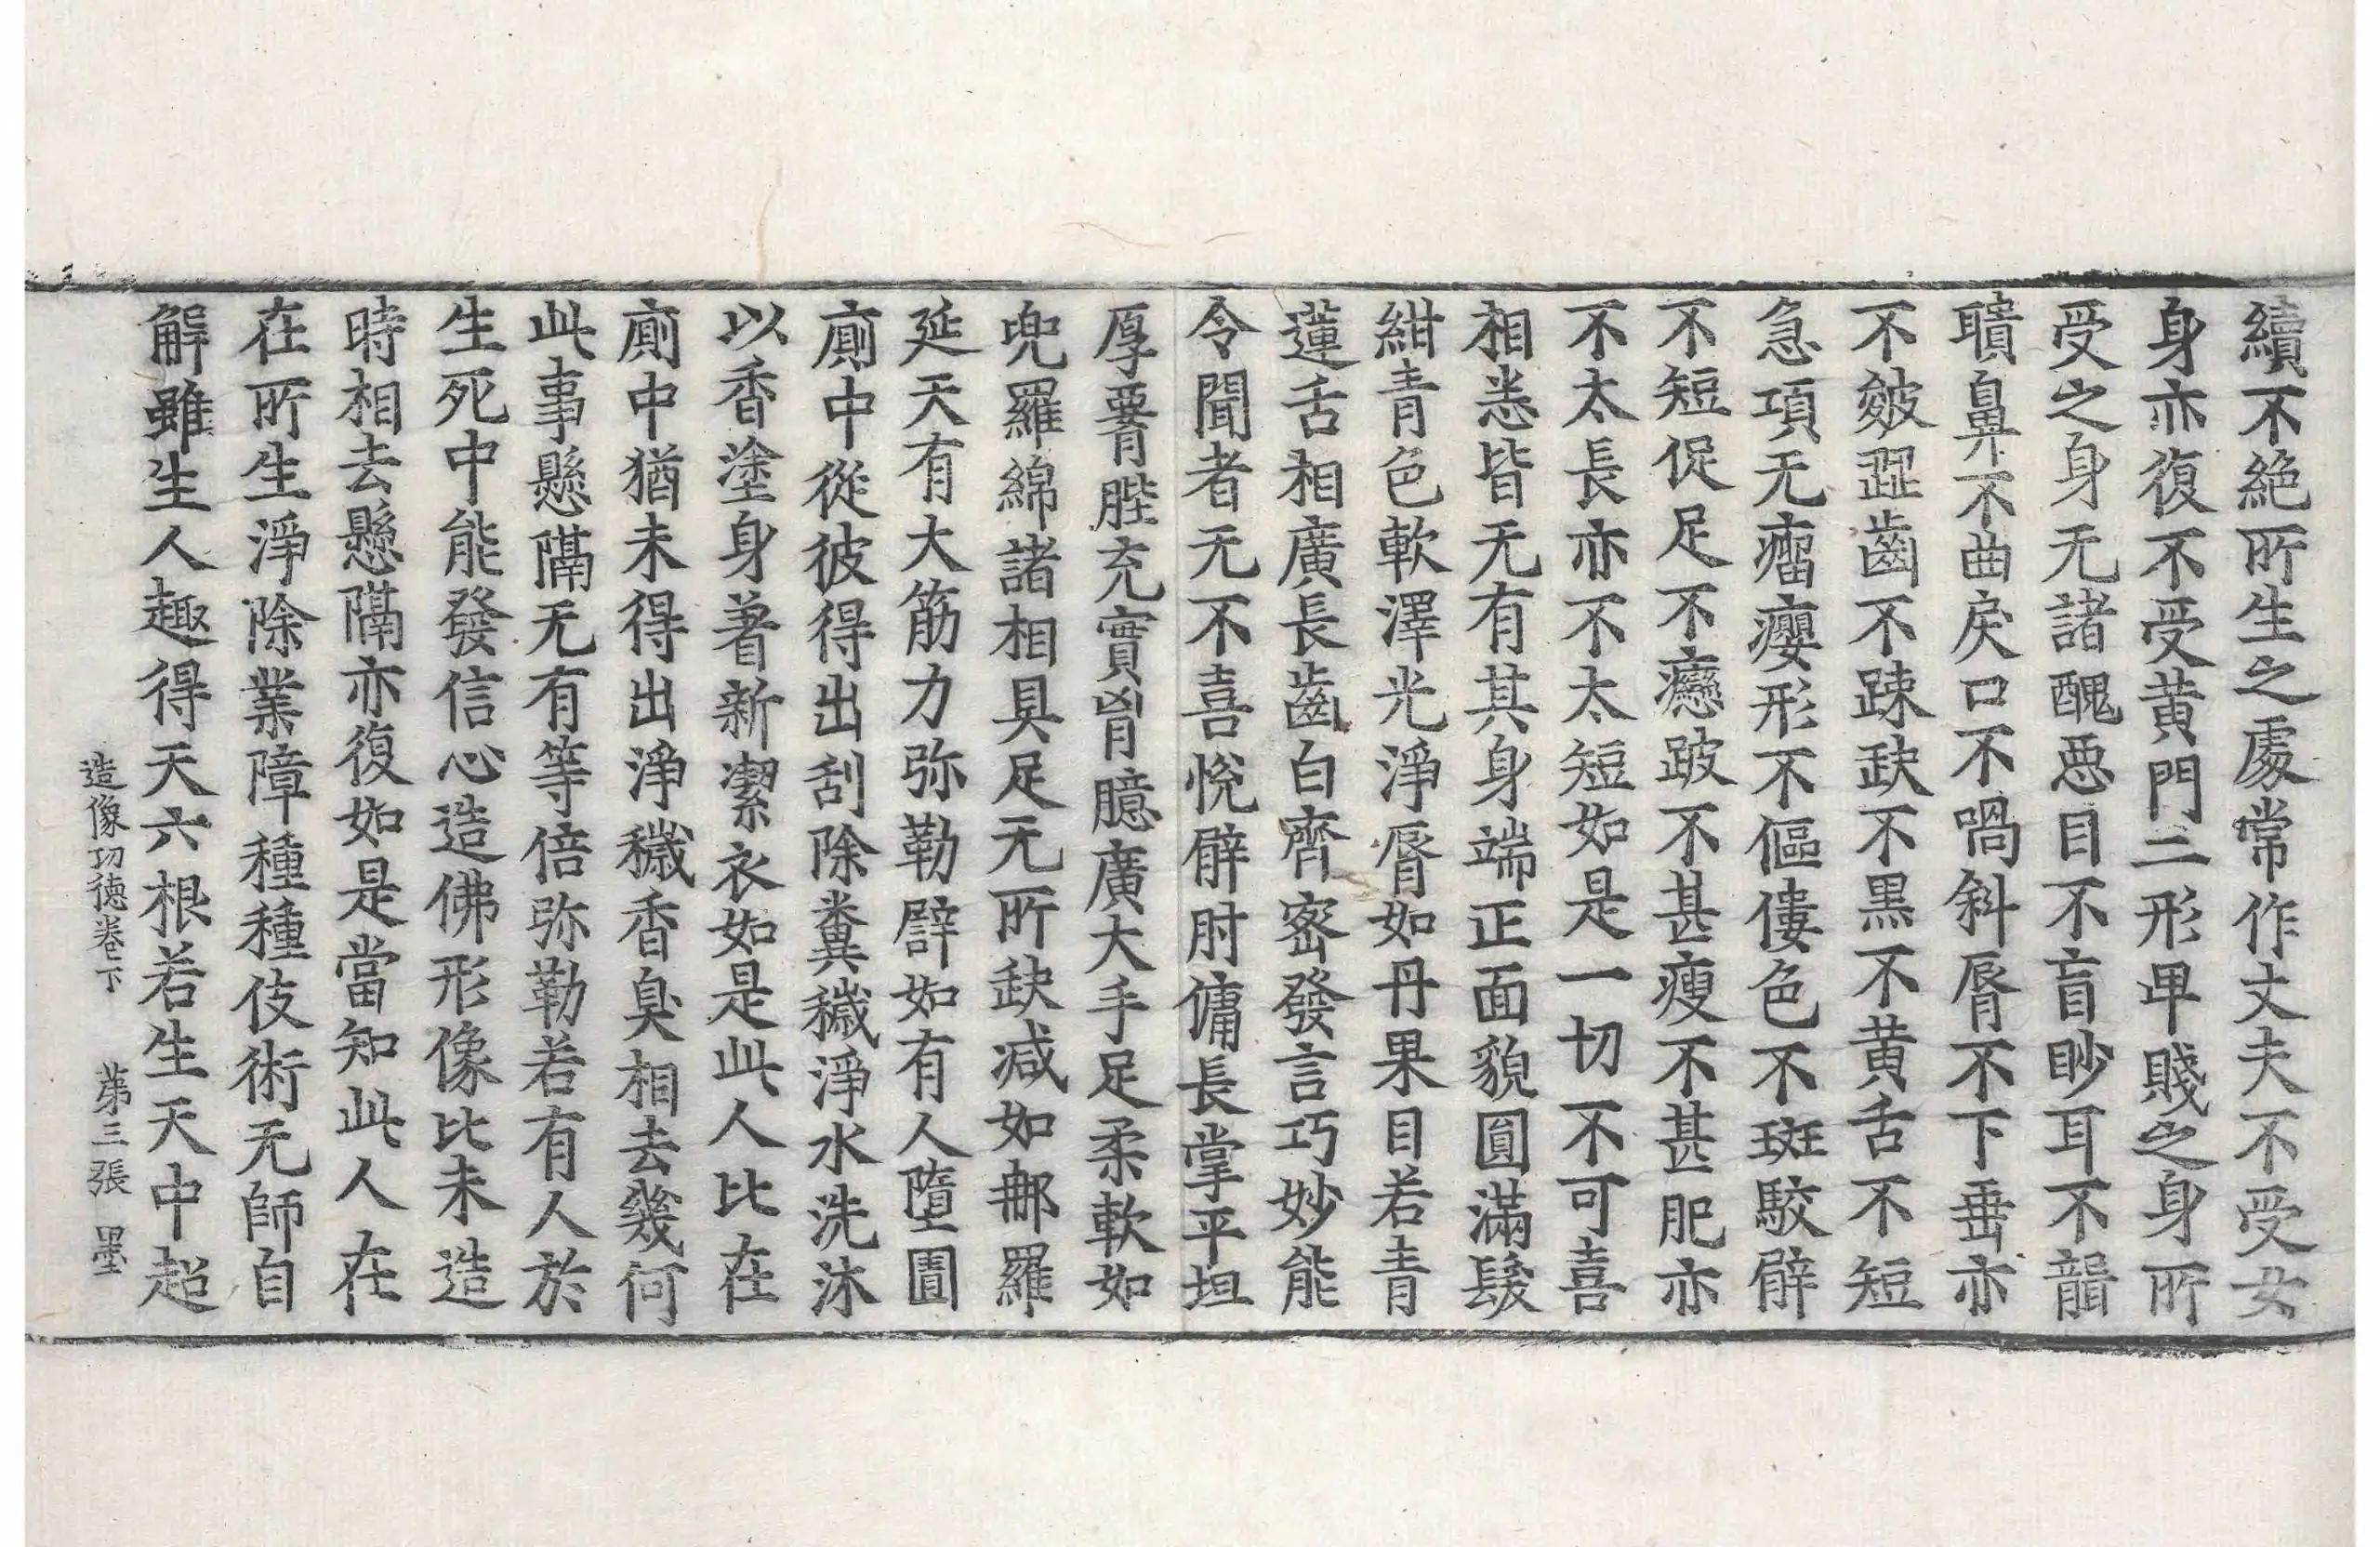 續不絕所生之處常作丈夫不受女
身亦復不受黃門二形卑賤之身所
受之身无諸醜惡目不盲眇耳不聾
聵鼻不曲戾口不喎斜脣不下垂亦
不皴澀齒不踈缺不黒不黃舌不短
急項无瘤癭形不傴僂色不斑駮臂
不短促足不癵跛不甚瘦不甚肥亦
不太長亦不太短如是一切不可喜
相悉皆无有其身端正面貌圓滿髮
紺青色軟澤光淨脣如丹果目若青
蓮舌相廣長齒白齊密發言巧妙能
令聞者无不喜悅臂肘傭長掌平坦
厚腰髀充實胷臆廣大手足柔軟如
兜羅綿諸相具足无所缺減如那羅
延天有大筋力弥勒譬如有人墮圊
廁中從彼得出刮除糞穢淨水洗沐
以香塗身著新潔衣如是此人比在
廁中猶未得出淨穢香臭相去幾何
此事懸隔无有等倍弥勒若有人於
生死中能發信心造佛形像比未造
時相去懸隔亦復如是當知此人在
在所生淨除業障種種伎術无師自
解雖生人趣得天六根若生天中超
造像功德卷下　第三張　墨